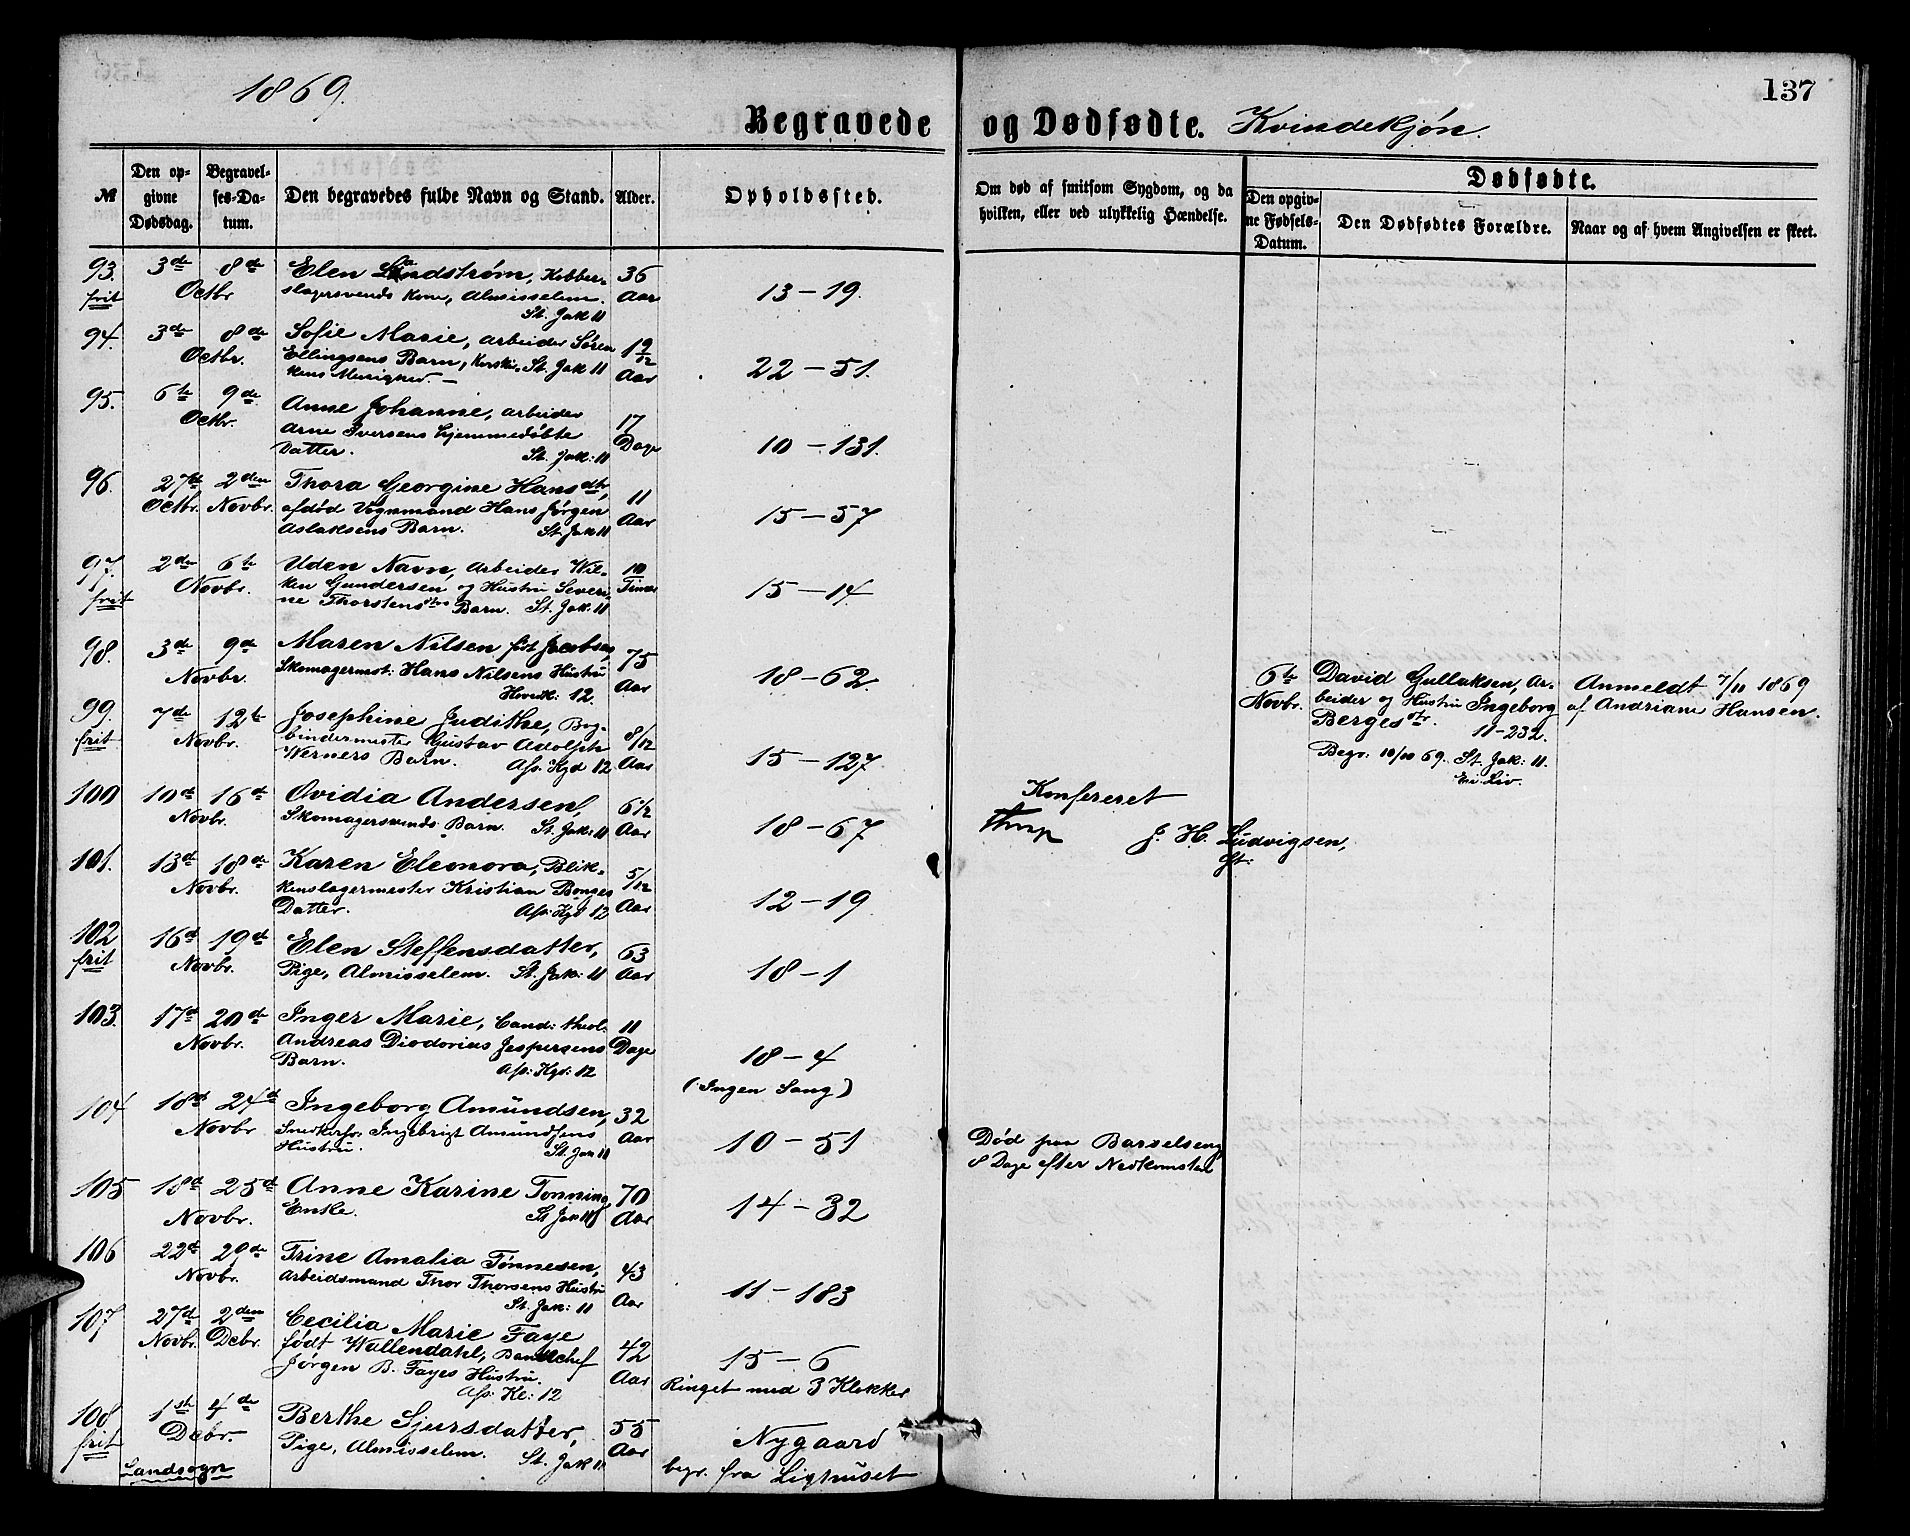 1869.
137
Begravede og Dødfødte. Kvindekjøn.
№
Den opgivne Dødsdag.
Begravelses-Datum.
Den begravedes fulde Navn og Stand.
Alder.
Opholdssted.
Om død af smitsom Sygdom, og da hvilken, eller ved ulykkelig Hændelse.
Dødfødte.
Den opgivne Fødsels-Datum.
Den Dødfødtes Forældre.
Naar og af hvem Angivelsen er skeet.
93. 3de 8de Elen Lindstrøm, Kobber- 36
frit Octbr slagersvends Kone, Almisselem. Aar 13-19.
St. Jak 11
94. 3de 8de Sofie Marie, arbeider Søren 1 9/12
Octbr. Ellingsens Barn, St. Jak 11 Aar 22-51.
kens Menighed.
95. 6te 9de Anne Johanne, arbeider 17
Octbr. Arne Iversens hjemmedøbte Dage 10-131.
Datter. St. Jak: 11
96. 27de 2den Thora Georgine Hansdtr, 11
Octbr. Novbr. afdød Vognmand Hans Jørgen Aar 15-57
Aslaksens Barn. St. Jak 11
97. 2den 6te Uden Navn, Arbeider Wil- 10
frit Novbr. ken Gundersen og Hustru Severi- Timer 15-14.
ne Thorstensdtrs Barn. St. Jak: 11
98. 3de 9de Maren Nilsen født Jacobsen, 75
Novbr. Skomagermst: Hans Nilsens Hustru Aar 18-62.
Hovedk: 12.
99. 7de 12te Josephine Judithe, Bog- 8/12
frit Novbr. bindermester Gustav Adolph Aar 15-127
Werners Barn. Ass. Kgd 12
6te Novbr. David Gullaksen, Ar-
beider og Hustru Ingeborg
Bergesdtr. 11-232.
Begr. 10/11 69. St. Jak: 11.
Anmeldt 7/11 1869
af Andriane Hansen.
100 10de 16de Ovidia Andersen, 6 1/2
Novbr. Skomagersvends Barn. St. Jak: 11 Aar 18-67
Konfereret
J. H. Ludvigsen,
101. 13de 18de Karen Eleonora, Blik- 5/12
Novbr. kenslagermester Kristian Bonges Aar 12-19
Datter. Ass: Kgd 12
102 16de 19de Elen Steffensdatter, 63
frit Novbr. Pige, Almisselem. St. Jak: 11 Aar 18-1
103. 17de 20de Inger Marie, Cand: theol: 11
Novbr. Andreas Diodorius Jespersens Dage 18-4
Barn. Ass: Kgd: 12 (Ingen Sang)
104 18de 24de Ingeborg Amundsen, 32
Novbr Snedkersv. Ingebrigt Amundsens Aar 10-51
Hustru. St. Jak 11
Død paa Barselseng
8 Dage efter Nedkomsten
105 18de 25de Anne Karine Tonning 70
Novbr. Enke. St. Jak 11 Aar 14-32
106 22de 29de Trine Amalia Tønnesen, 43
Novbr. Arbeidsmand Thor Thorsens Hustru Aar 11-183
St. Jak: 11
107 27de 2den Cecilia Marie Faye
Novbr. Dcbr. født Wallendahl, Bankchef 42 15-6
Jørgen B. Fayes Hustru. Aar Ringet med 3 Klokker
Ass. Kl: 12
108 1ste 4de Berthe Sjursdatter, 55
frit Dcbr. Pige, Almisselem. St. Jak 11 Aar Nygaard
Landsogn begr. fra Lighuset